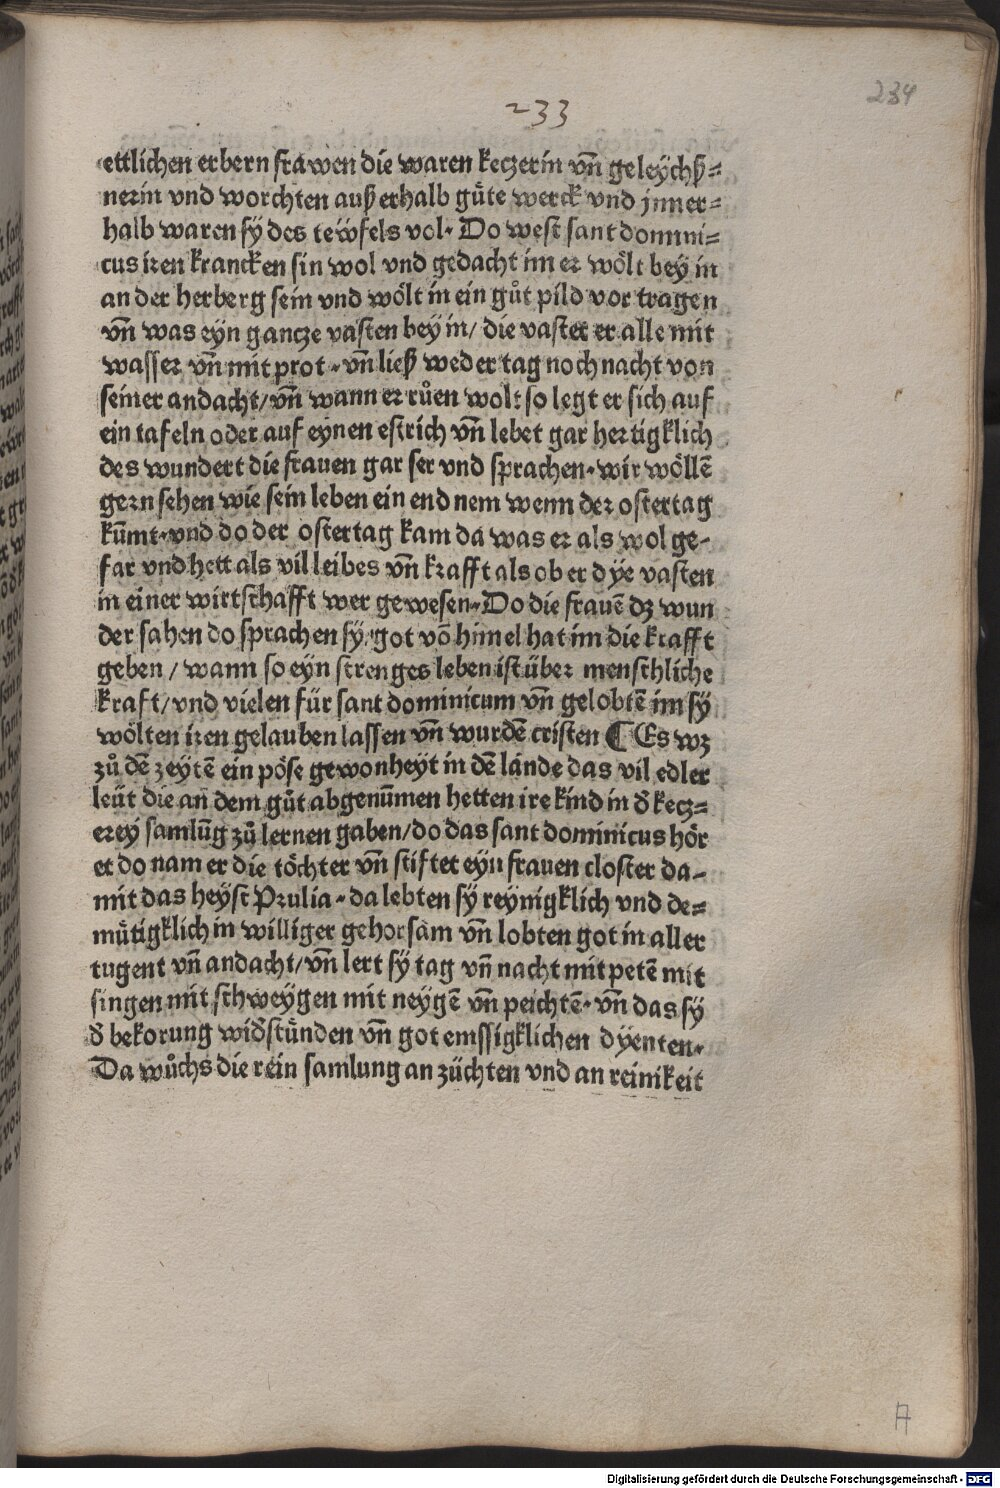 234
233
ettlichen erbern frawen die waren keczerin vn̄ geleychß⸗
nerin vnd worchten außerhalb gůte werck vnd jnner⸗
halb waren sy̋ des teẅfels vol· Do west sant domini⸗
cus iren krancken sin wol vnd gedacht im er wölt bey in
an der herberg sein vnd wölt in ein gůt pild vor tragen
vn̄ was eyn gancze vasten bey in/ die vastet er alle mit
wasser vn̄ mit prot · vn̄ ließ weder tag noch nacht von
seiner andacht/ vn̄ wann er růen wolt so legt er sich auf
ein tafeln oder auf eynen estrich vn̄ lebet gar hertigklich
des wundert die frauen gar ser vnd sprachen· wir wöllē
gern sehen wie sein leben ein end nem wenn der ostertag
kūmt· vnd do der ostertag kam da was er als wol ge⸗
far vnd hett als vil leibes vn̄ krafft als ob er dye vasten
in einer wirtschafft wer gewesen· Do die frauē dz wun
der sahen do sprachen sy̋/ got vō himel hat im die krafft
geben / wann so eyn strenges leben ist über menschliche
kraft/ vnd vielen für sant dominicum vn̄ gelobtē im sy̋
wölten iren gelauben lassen vn̄ wurdē cristen ¶ Es wz
zů dē zeytē ein pöse gewonheyt in dē lande das vil edler
leüt die an dem gůt abgenūmen hetten ire kind in d̄ kecz⸗
erey samlūg zů lernen gaben/ do das sant dominicus hör
et do nam er die töchter vn̄ stiftet eyn frauen closter da⸗
mit das heyst Prulia · da lebten sy̋ reynigklich vnd de⸗
můtigklich in williger gehorsam vn̄ lobten got in aller
tugent vn̄ andacht/ vn̄ lert sy̋ tag vn̄ nacht mit petē mit
singen mit schweygen mit neygē vn̄ peichtē· vn̄ das sy̋
d̄ bekorung wid̄stünden vn̄ got emssigklichen dyenten·
Da wůchs die rein samlung an züchten vnd an reinikeit
A
Digitalisierung gefördert durch die Deutsche Forschungsgemeinschaft - DFG